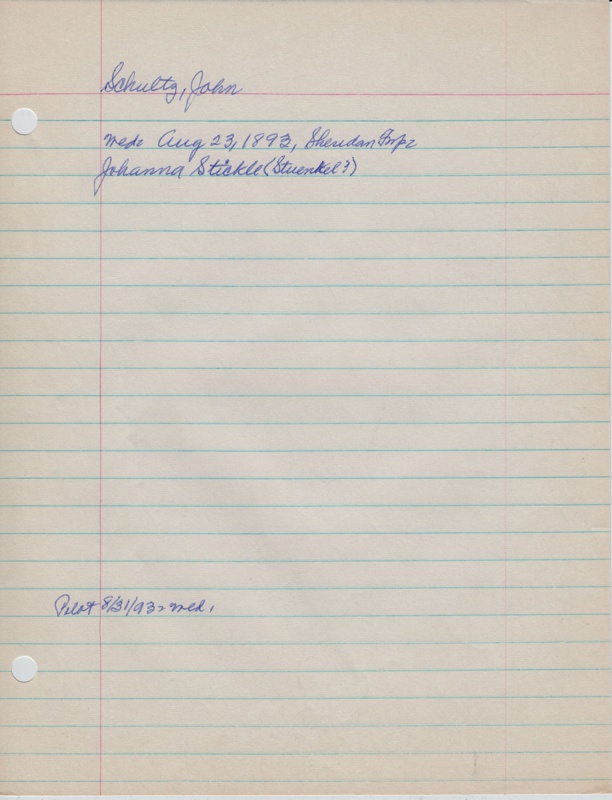 Schultz, John
wed: Aug 23, 1893, Sheridan Twp:
Johanna Stickle (Stuenkel?)
Pilot 8/31/93 = wed.